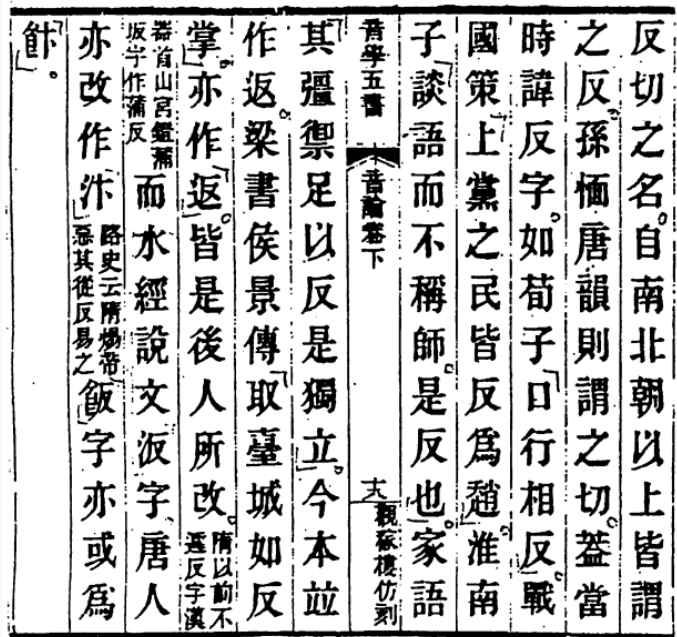 反切之名。自南北朝以上皆謂
之反。孫愐唐韻則謂之切。葢當
時諱反字。如荀子「口行相反」。戰
國策「上黨之民皆反爲趙」。淮南
子「談語而不稱師。是反也」。家語
音學五書 音論卷下 十六 觀稼樓仿刻
其彊禦足以反是獨立」。今本竝
作返。梁書侯景傳「取臺城如反
掌」。亦作「返」。皆是後人所改。隋以前不
避反字漢
器首山宮鐙蒲
坂字作蒲反
而水經說文汳字唐人
亦改作汴」路史云隋煬帝
惡其從反易之
飯字亦或爲
飰」。